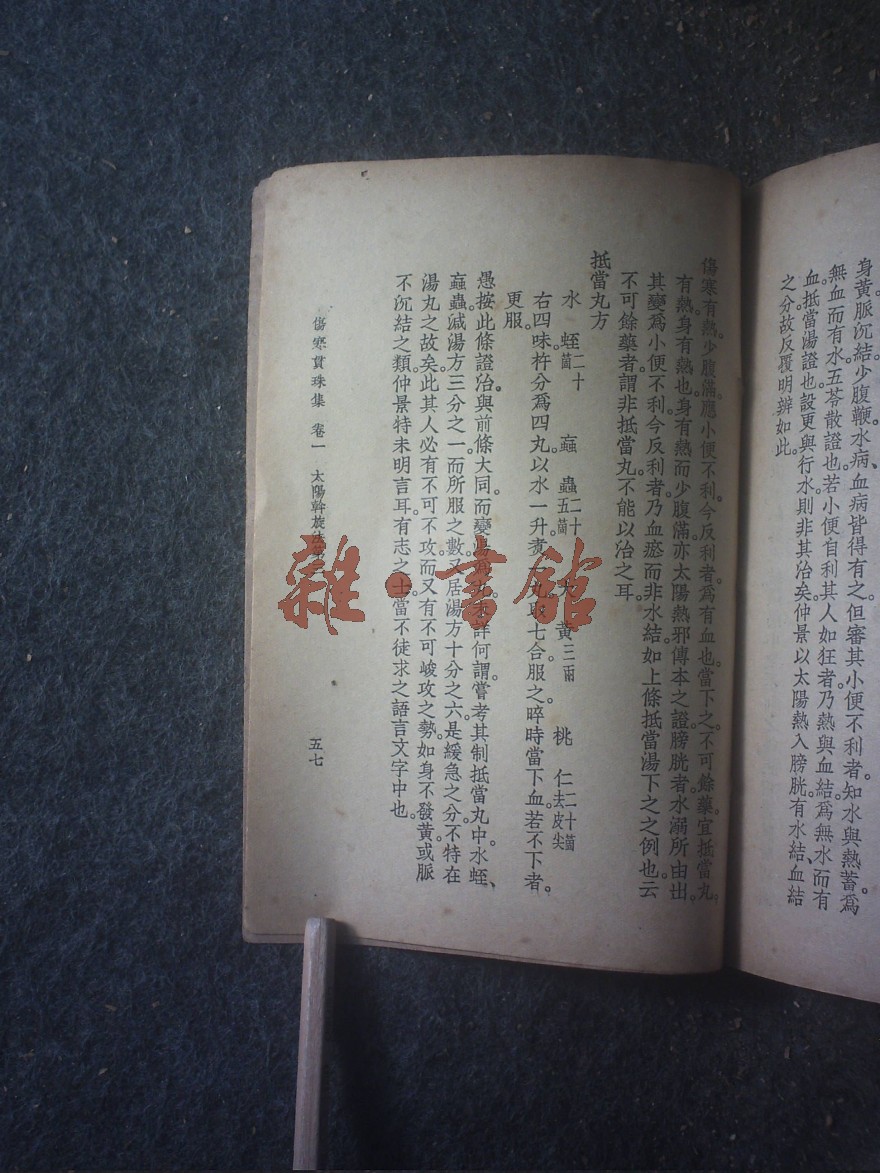 身黃脈沉結少腹鞕水病、血病皆得有之但審其小便不利者知水與熱蓄爲
無血而有水五苓散證也若小便自利其人如狂者乃熱與血結爲無水而有
血抵當湯證也設更與行水則非其治矣仲景以太陽熱入膀胱有水結、血結
之分故反覆明辨如此。
傷寒有熱。少腹滿應小便不利。今反利者。爲有血也。當下之。不可餘藥。宜抵當丸。
有熱。身有熱也。身有熱而少腹滿。亦太陽熱邪傳本之證。膀胱者。水溺所由出。
其變爲小便不利。今反利者。乃血瘀而非水結。如上條抵當湯下之之例也。云
不可餘藥者。謂非抵當丸。不能以治之耳。
抵當丸方
水蛭二十箇 蝱蟲二十五箇 大黃三兩 桃仁二十箇去皮尖
右四味。杵分爲四丸。以水一升。煑一丸。取七合服之。晬時當下血。若不下者。
更服。
愚按此條證治。與前條大同。而變湯爲丸。未詳何謂。嘗考其制抵當丸中。水蛭、
蝱蟲。減湯方三分之一。而所服之數。又居湯方十分之六。是緩急之分。不特在
湯丸之故矣。此其人必有不可不攻。而又有不可峻攻之勢。如身不發黃。或脈
不沉結之類。仲景特未明言耳。有志之士。當不徒求之語言文字中也。
傷寒貫珠集 卷一 太陽斡旋法第三
五七
雜·書館